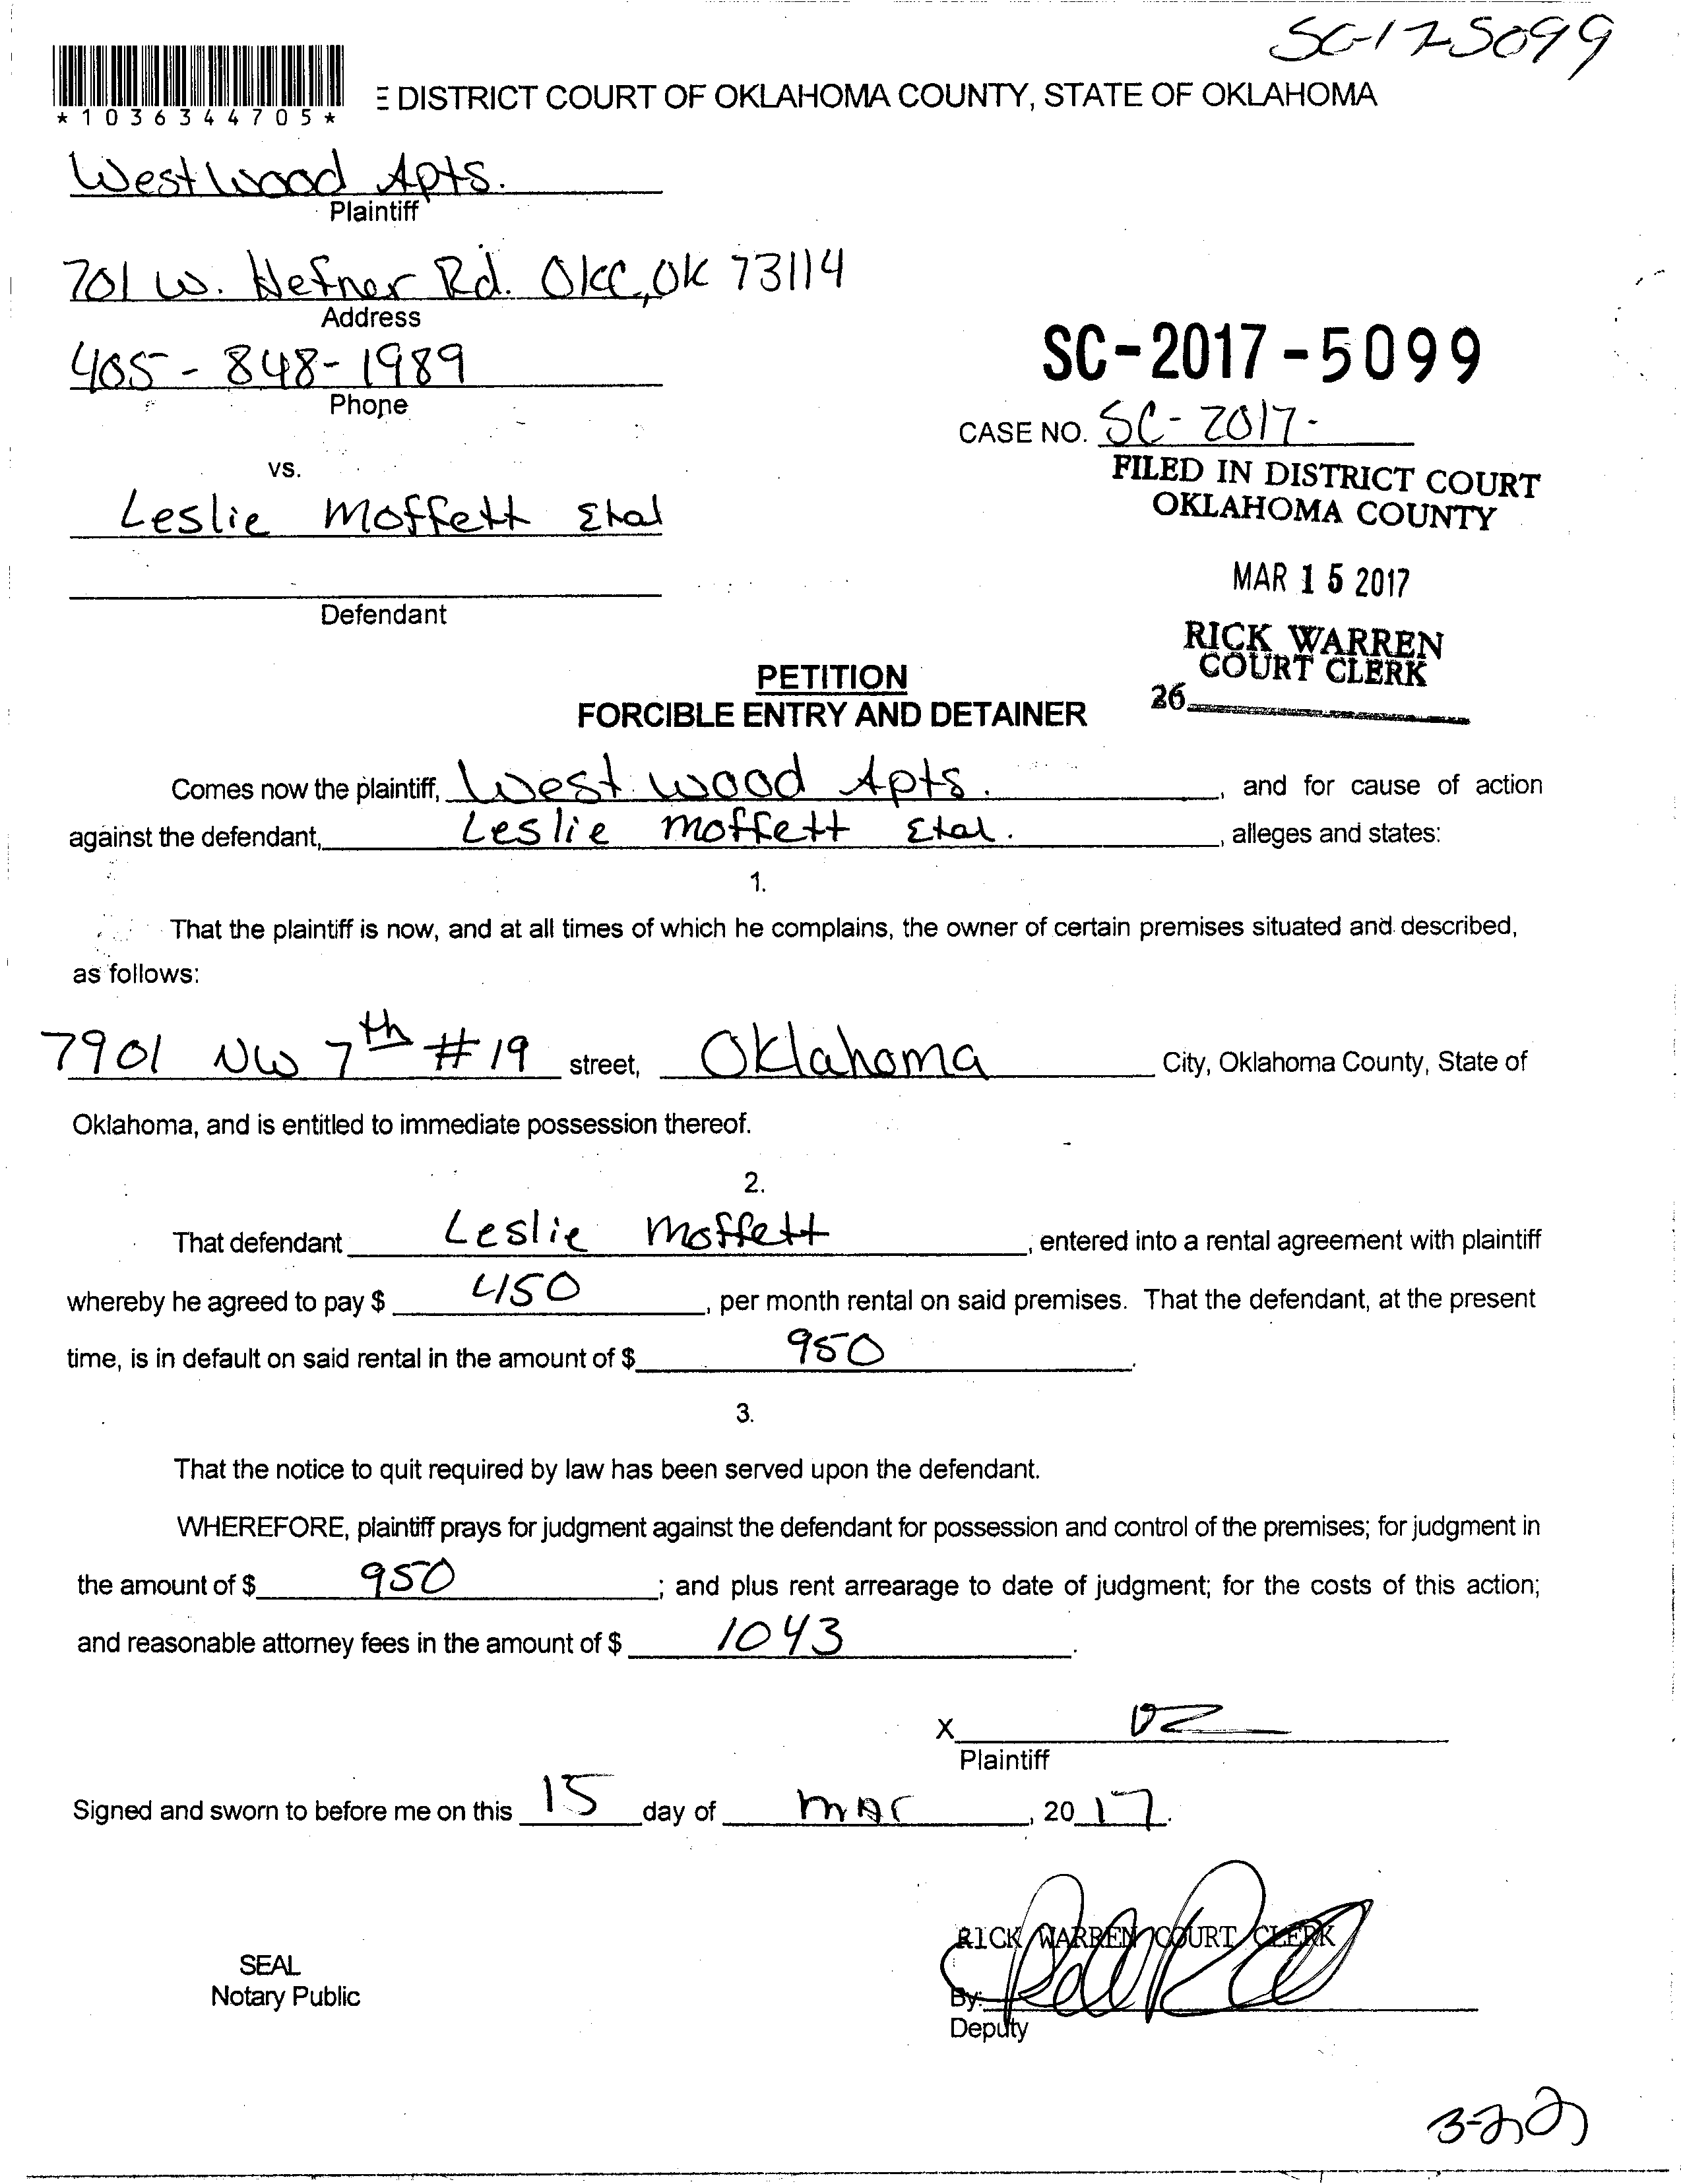 SC-17-5099
*1036344705*
E DISTRICT COURT OF OKLAHOMA COUNTY, STATE OF OKLAHOMA
Westwood Apts.
Plaintiff
701 W. Hefner Rd. OKC, OK 73114
Address
405-848-1989
Phone
SC-2017-5099
CASE NO. SC-2017-
vs.
FILED IN DISTRICT COURT
OKLAHOMA COUNTY
Leslie Moffett Etal
MAR 15 2017
Defendant
RICK WARREN
COURT CLERK
26
PETITION
FORCIBLE ENTRY AND DETAINER
Comes now the plaintiff, West wood Apts. , and for cause of action
against the defendant, Leslie Moffett Etal. , alleges and states:
1.
That the plaintiff is now, and at all times of which he complains, the owner of certain premises situated and described,
as follows:
7901 NW 7th #19 street, Oklahoma City, Oklahoma County, State of
Oklahoma, and is entitled to immediate possession thereof.
2.
That defendant Leslie Moffett , entered into a rental agreement with plaintiff
whereby he agreed to pay $ 450 , per month rental on said premises. That the defendant, at the present
time, is in default on said rental in the amount of $ 950 .
3.
That the notice to quit required by law has been served upon the defendant.
WHEREFORE, plaintiff prays for judgment against the defendant for possession and control of the premises; for judgment in
the amount of $ 950 ; and plus rent arrearage to date of judgment; for the costs of this action;
and reasonable attorney fees in the amount of $ 1043 .
X
Plaintiff
Signed and sworn to before me on this 15 day of Mar , 20 17.
RICK WARREN COURT CLERK
SEAL
Notary Public
By:
Deputy